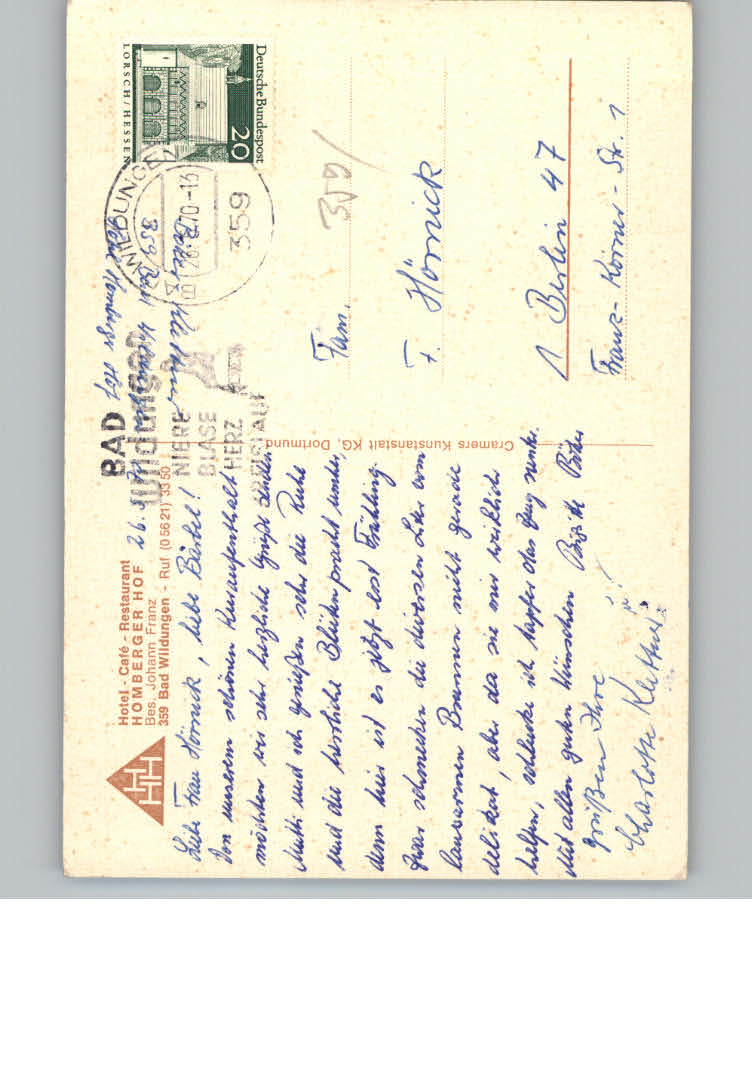 Hotel - Café - Restaurant
HOMBERGER HOF
Bes. Johann Franz
359 Bad Wildungen - Ruf (0 56 21) 33 50
HHH
26.
Liebe Frau Hörnick, liebe Bärbel!
Von unserem schönen Kuraufenthalt
möchten wir sehr herzliche Grüße senden.
Mutti und ich genießen sehr die Ruhe
und die herrliche Blütenpracht unter,
denn hier ist es jetzt erst Frühling.
Zwar schmecken die diversen Liter vom
lauwarmen Brunnen nicht gerade
delikat, aber da sie mir wirklich
helfen, schlucke ich tapfer das Zeug runter.
Mit allen guten Wünschen Brigitte
grüßen Ihre
Charlotte
Cramers Kunstanstalt KG, Dortmund
BAD
Wildungen
NIERE
BLASE
HERZ
KREISLAUF
359 Bad
Homberger Hof
WILDUNGEN
70-13
359
Deutsche Bundespost
20
LORSCH/HESSEN
359/
Fam.
F. Hörnick
1 Berlin 47
Franz-Körner-Str. 1